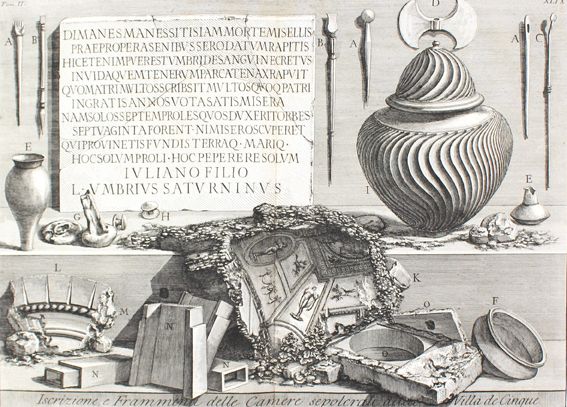 Tom. II.
XLIX
DI MANES MANES SITIS IAM MORTE MISELLIS
PRAEPROPERA SENIBUS SERO DATVM RAPITIS
HIC ETENIM PVER EST VMBRI DE SANGVINE CRETVS
INVIDA QVEM TENERVM PARCA TENAX RAPVIT
QVOM ATRI MVLTOS SCRIBSIT MVLTOS QVOQ PATRI
INGRATIS ANNOS VOTA SATIS MISERA
NAM SOLOS SEPTEM PROLES QVOS DVXERIT ORBES
SEPTVAGINTA FORENT NI MISEROS CVPERET
QVI PROVINETIS FVNDIS TERRAQ · MARIQ ·
HOC SOLVM PROLI · HOC PEPERERE SOLVM
IVLIANO FILIO
L · VMBRIVS SATVRNINVS
A
B
B
C
D
A
C
E
G
H
I
E
L
M
N
N
N
K
O
O
F
Iscrizione e Frammenti delle Camere sepolcrali Villa de Cinque